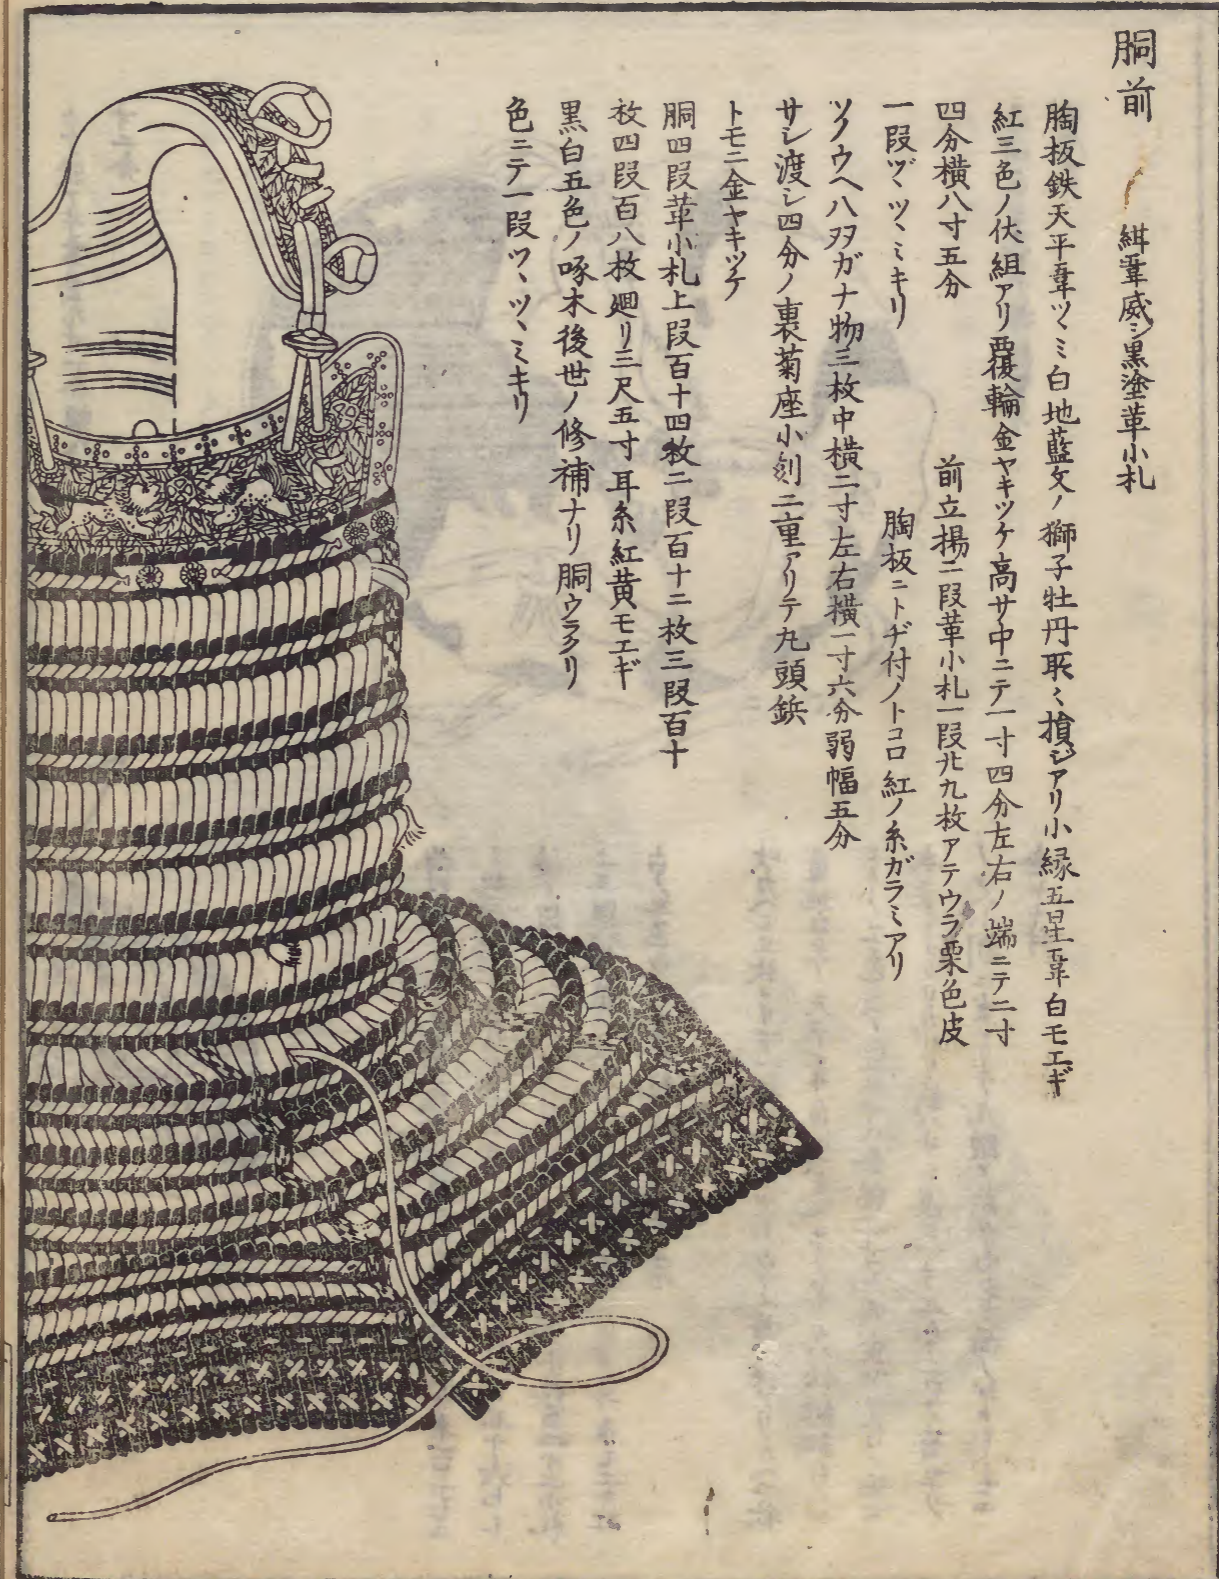 胴前　紺韋威シ黒塗革小札
胸板鉄天平韋ツヽミ白地藍文ノ獅子牡丹聊〻損ジアリ小縁五星韋白モエギ
紅三色ノ伏組アリ覆輪金ヤキツケ高サ中ニテ一寸四分左右ノ端ニテ二寸
四分横八寸五分　前立揚二段革小札一段廿九枚アテウラ栗色皮
一段ヅヽツヽミキリ　胸板ニトヂ付ノトコロ紅ノ糸ガラミアリ
ソノウヘ八双ガナ物三枚中横二寸左右横一寸六分弱幅五分
サシ渡シ四分ノ裏菊座小刻二重アリテ丸頭鋲
トモニ金ヤキツケ
胴四段革小札上段百十四枚二段百十二枚三段百十
枚四段百八枚廻リ三尺五寸耳糸紅黄モエギ
黒白五色ノ啄木後世ノ修補ナリ胴ウラクリ
色ニテ一段ツヽツヽミキリ